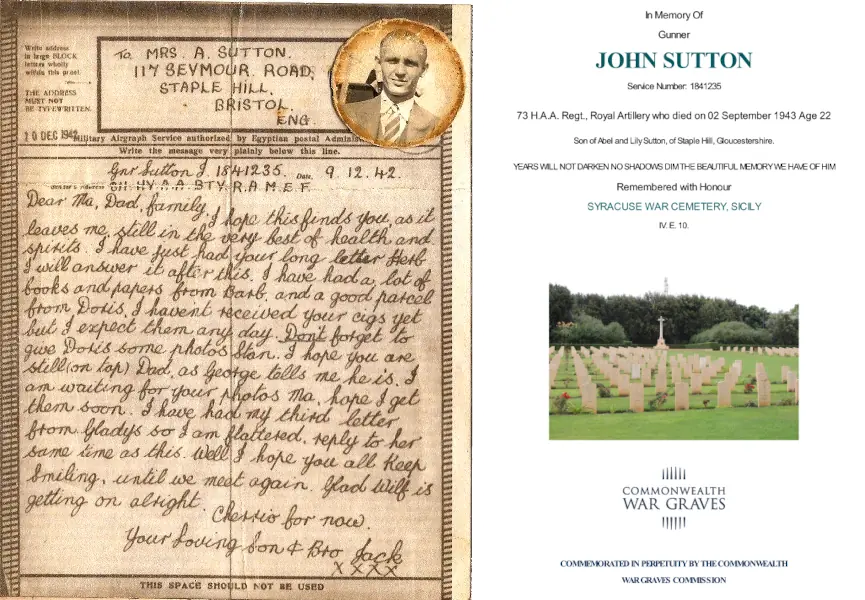 Write address
in large BLOCK
letters wholly
within this panel.
THE ADDRESS
MUST NOT
BE TYPEWRITTEN.
To MRS. A. SUTTON.
117 SEYMOUR ROAD,
STAPLE HILL,
BRISTOL.
ENG.
10 DEC 1942
Military Airgraph Service authorized by Egyptian postal Adminis
Write the message very plainly below this line.
Gnr Sutton J. 1841235. Date. 9. 12. 42.
HY. A. A. BTY. R.A. M.E.F.
Dear Ma, Dad, family,
I hope this finds you, as it
leaves me, still in the very best of health and
spirits. I have just had your long letter Herb
I will answer it after this. I have had a lot of
books and papers from Barb, and a good parcel
from Doris, I havent received your cigs yet
but I expect them any day. Don't forget to
give Doris some photos Stan. I hope you are
still (on top) Dad, as George tells me he is. I
am waiting for your photos Ma, hope I get
them soon. I have had my third letter
from Gladys so I am flattered, reply to her
same time as this. Well I hope you all keep
smiling, until we meet again. Glad Wilf is
getting on alright.
Cherrio for now.
Your Loving Son & Bro Jack
X X X X
THIS SPACE SHOULD NOT BE USED
In Memory Of
Gunner
JOHN SUTTON
Service Number: 1841235
73 H.A.A. Regt., Royal Artillery who died on 02 September 1943 Age 22
Son of Abel and Lily Sutton, of Staple Hill, Gloucestershire.
YEARS WILL NOT DARKEN NO SHADOWS DIM THE BEAUTIFUL MEMORY WE HAVE OF HIM
Remembered with Honour
SYRACUSE WAR CEMETERY, SICILY
IV. E. 10.
COMMONWEALTH
WAR GRAVES
COMMEMORATED IN PERPETUITY BY THE COMMONWEALTH
WAR GRAVES COMMISSION